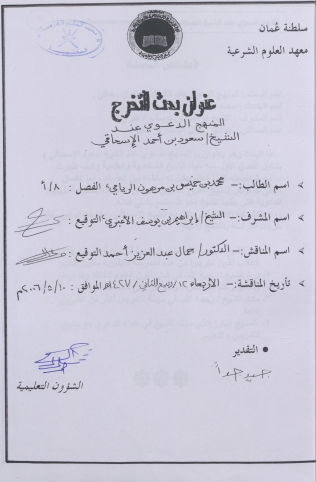 سلطنة عُمان
معهد العلوم الشرعية
عنوان بحث التخرج
المنهج الدعوي عند
الشيخ/ سعود بن أحمد الإسحاقي
اسم الطالب:- محمد بن خميس بن مرهون الريامي، الفصل: ٨/أ
اسم المشرف:- الشيخ/ إبراهيم بن يوسف الأغبري، التوقيع:
اسم المناقش:- الدكتور/ جمال عبد العزيز أحمد التوقيع:
تأريخ المناقشة:- الأربعاء ١٢/ ربيع الثاني/ ١٤٢٧هـ الموافق: ١٠/ ٥/ ٢٠٠٦م
التقدير
جيد جداً
الشؤون التعليمية